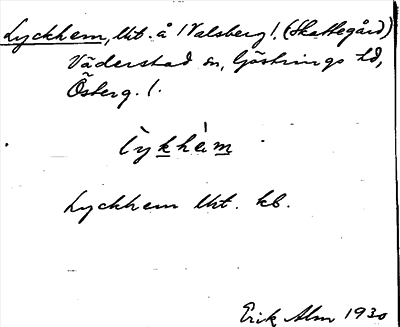 Lyckhem, lht. å /Valsberg/, (Skattegård)
Väderstad sn, Göstrings hd,
Österg. /.
lykhèm
Lyckhem lht. kb.
Erik Alm 1930